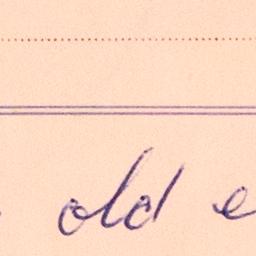 old e